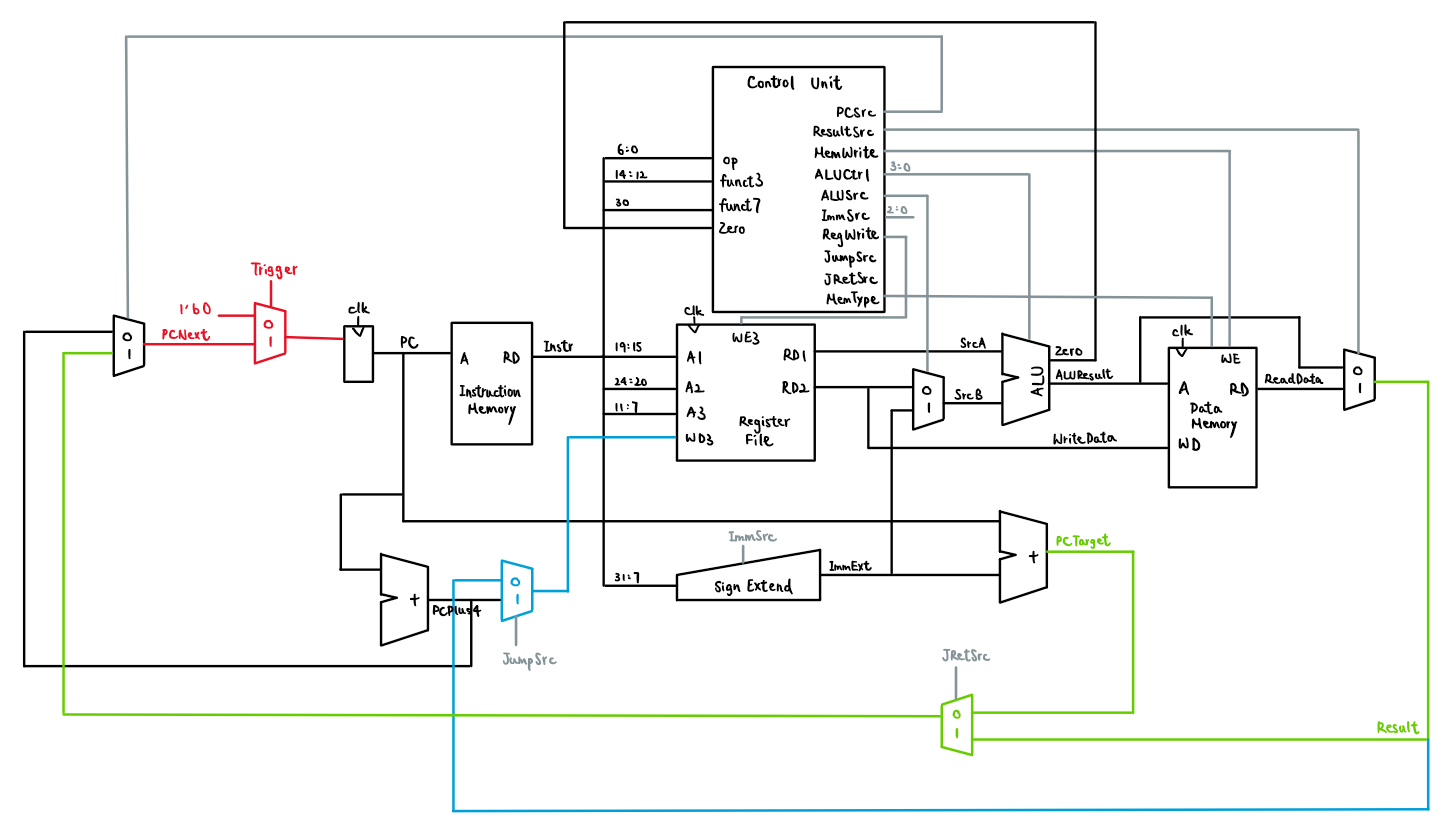 Control Unit
PCSrc
ResultSrc
MemWrite
ALUCtrl
ALUSrc
ImmSrc
RegWrite
JumpSrc
JRetSrc
MemType
op
funct3
funct7
Zero
6:0
14:12
30
3:0
2:0
Trigger
1'b0
PCNext
0
1
0
1
clk
PC
A
RD
Instruction
Memory
Instr
19:15
24:20
11:7
clk
WE3
A1
A2
A3
WD3
RD1
RD2
Register
File
0
1
SrcA
SrcB
ALU
Zero
ALUResult
WriteData
clk
WE
A
RD
Data
Memory
WD
ReadData
0
1
+
PCPlus4
0
1
JumpSrc
31:7
ImmSrc
Sign Extend
ImmExt
+
PCTarget
JRetSrc
0
1
Result